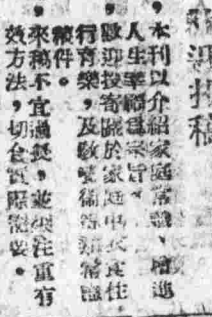 迎投稿
，本刊以介紹家庭常識、增進
人生幸福爲宗旨。
歡迎投寄關於家庭中衣食住
行育樂，及
稿件。
來稿不宜過長，並須注重有
效方法，切合實際需要。